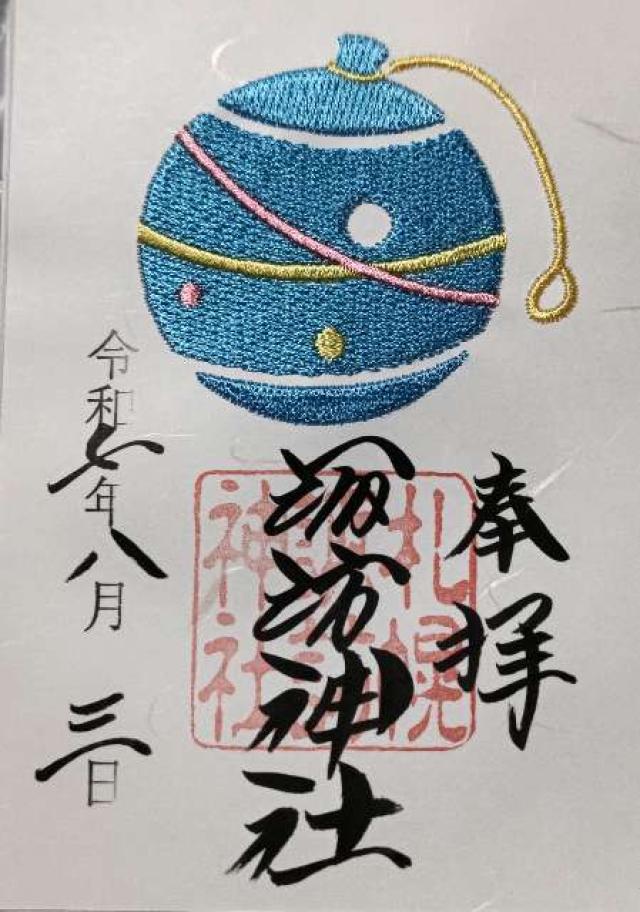 奉拝
札幌
諏訪
神社
諏訪神社
令和七年八月三日